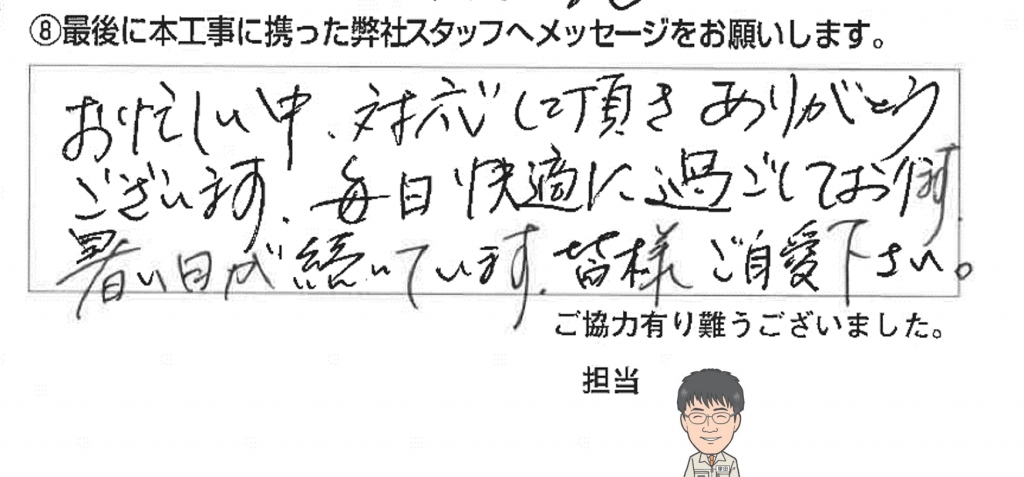 ⑧最後に本工事に携った弊社スタッフへメッセージをお願いします。
お忙しい中、対応して頂き ありがとう
ございます。毎日快適に過ごしております。
暑い日が続いています。皆様 ご自愛下さい。
ご協力有り難うございました。
担当